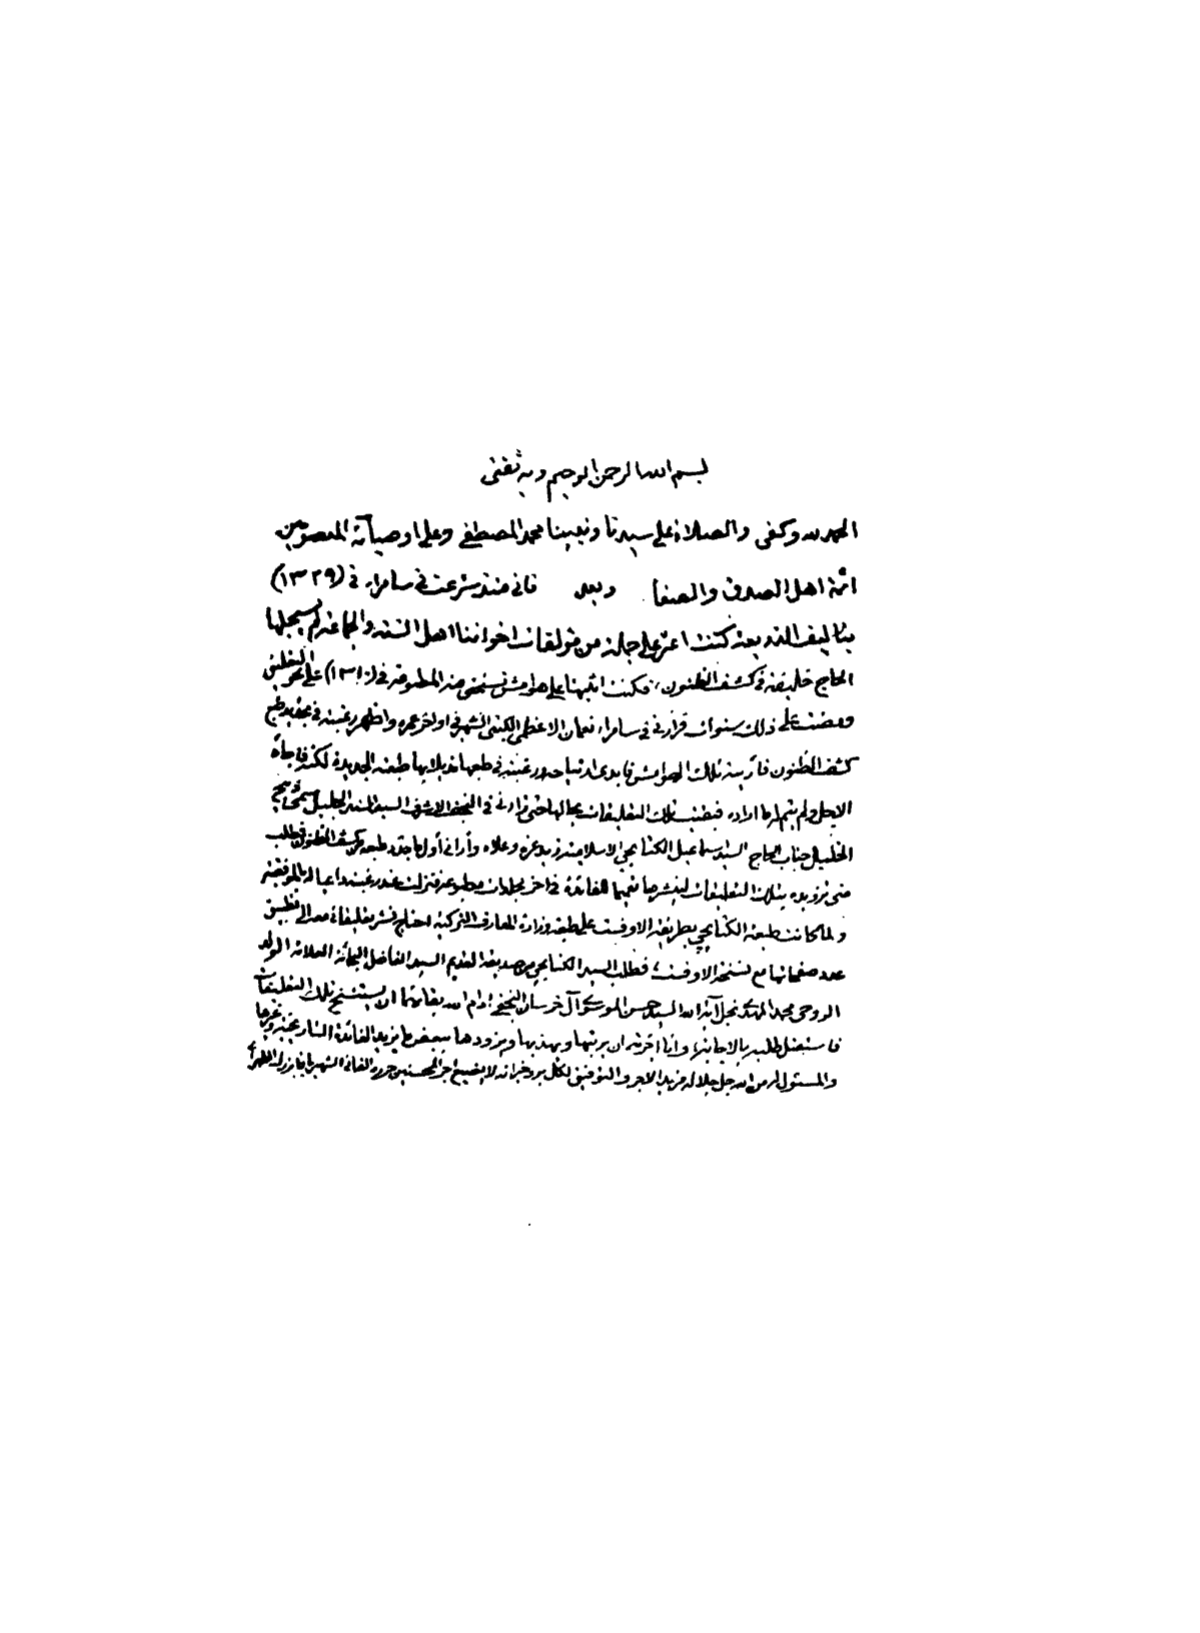 بسم الله الرحمن الرحيم وبه ثقتي
الحمد لله وكفى والصلاة على سيدنا ونبينا محمد المصطفى وعلى اوصيائه المعصومين
ائمة اهل الصدق والصفا وبعد فاني منذ شرعت في سامراء في (١٣٢٩)
بتاليف الذريعة كنت اعثر على جملة من مؤلفات اخواننا اهل السنة والجماعة لم يسجلها
الحاج خليفة في كشف الظنون، فكنت اثبتها على هوامش نسختي منه المطبوعة في (١٣١٠) على نحو التعليق
ومضت على ذلك سنوات فزارني في سامراء نعمان الاعظمي الكتبي الشهير في اواخر عمره واظهر رغبته في تجديد طبع
كشف الظنون فأريته تلك الهوامش فابدى ارتياحه ورغبته في طبعها تذييلا بها طبعته الجديدة لكنه فاجأه
الاجل ولم يتم له ما اراده فبقيت تلك التعليقات بحالها حتى زارني في النجف الاشرف السيد السند الجليل سمي ذبيح
الخليل جناب الحاج السيد اسماعيل الكتابچي الاسلامية زيد عزه وعلاه وأراني أول ما جدد طبعه من كشف الظنون وطلب
مني تزويده بتلك التعليقات لينشرها تعميما للفائدة في آخر مجلدات مطبوعه فنزلت عند رغبته داعيا له بالموفقية
ولما كانت طبعة الكتابچي بطريقة الاوفست على طبعة وزارة المعارف التركية احتاج نشر تعليقاته الى تطبيق
عدد صفحاتها مع نسخة الاوفست، فطلب السيد الكتابچي من صديقه القديم السيد الفاضل البحاثة العلامة الولد
الروحي محمد المهدي نجل آية الله السيد حسن الموسوي آل خرسان النجفي ادام الله بقائهما ان يستنسخ تلك التعليقات
فاستقبل طلبه بالاجابة، وانا اجزته ان يرتبها ويهذبها ويزودها ببعض ما يزيد الفائدة
والمسئول له من الله جل جلاله مزيد الاجر والتوفيق لكل بر وخير انه لا يضيع اجر المحسنين حرره الفاني الشهير بآقا بزرك الطهراني